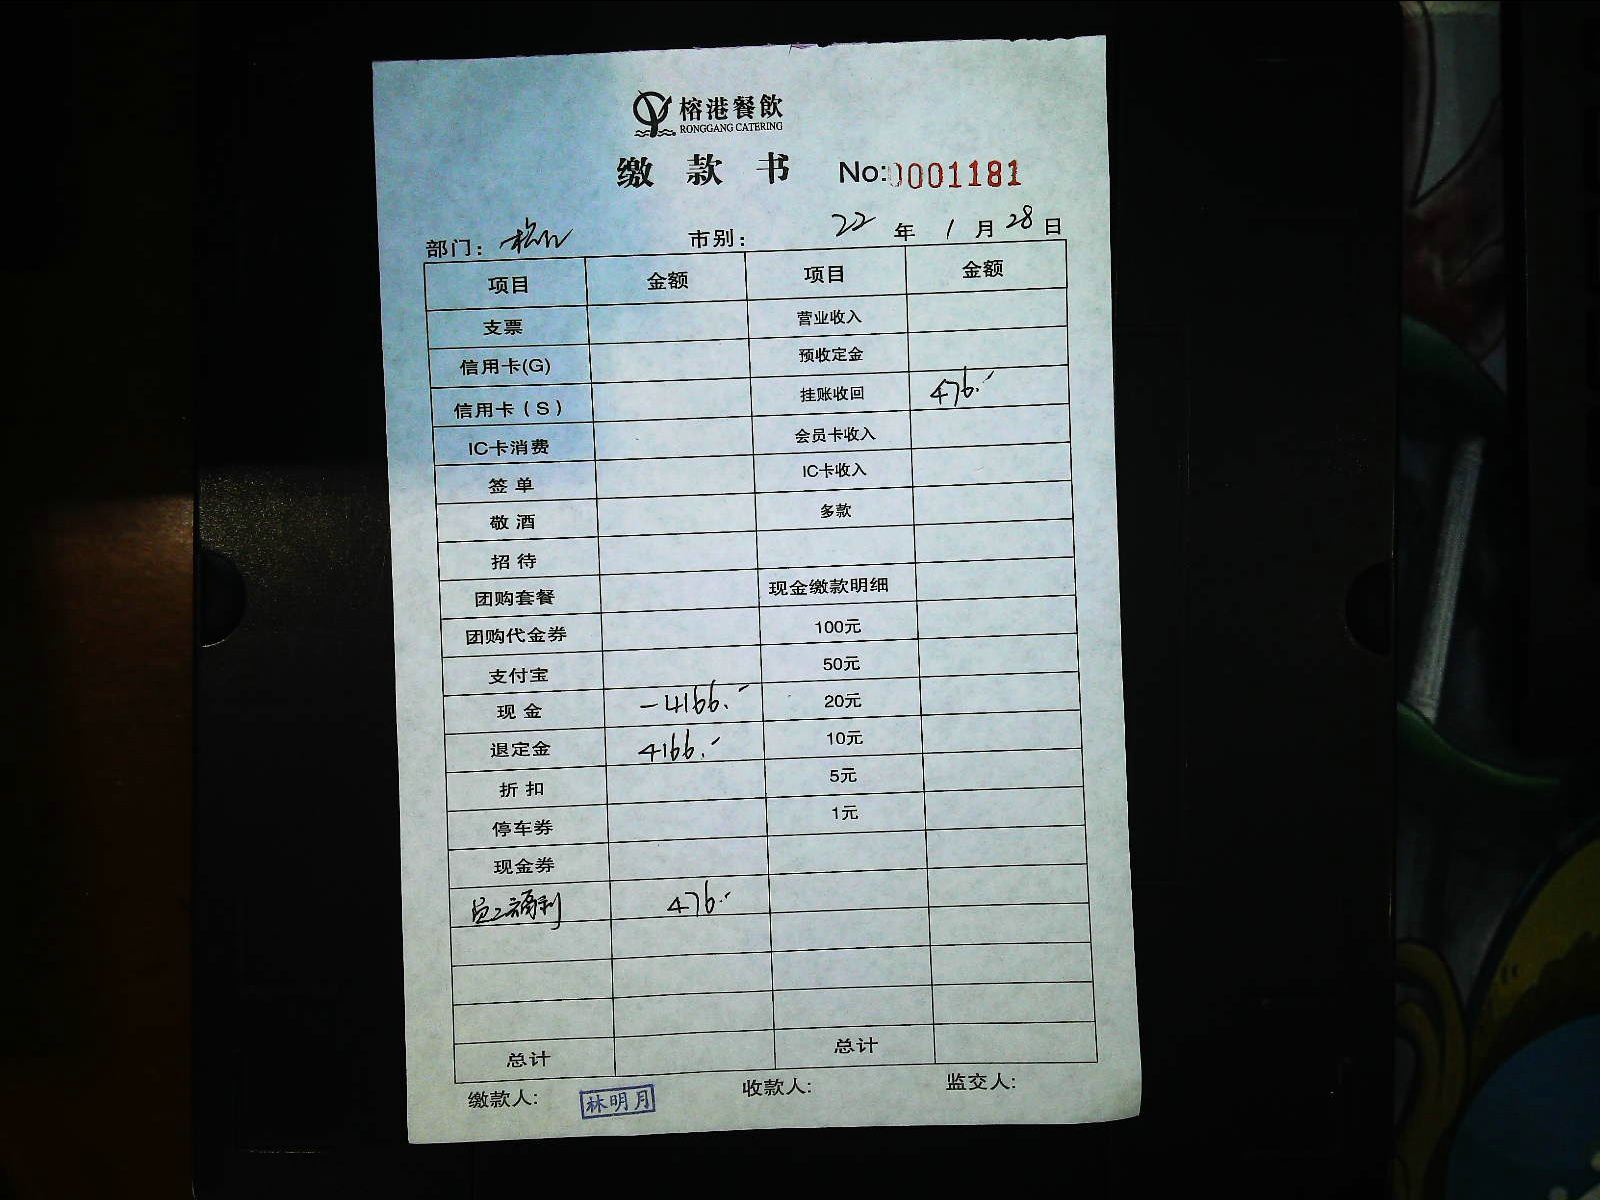 榕港餐飲
RONGGANG CATERING
缴 款 书 No:0001181
部门: 市别: 22 年 1 月 28 日
项目 金额 项目 金额
支票 营业收入
信用卡(G) 预收定金
信用卡（S） 挂账收回 476.-
IC卡消费 会员卡收入
签单 IC卡收入
敬酒 多款
招待
团购套餐 现金缴款明细
团购代金券 100元
支付宝 50元
现金 -4166.- 20元
退定金 4166.- 10元
折扣 5元
停车券 1元
现金券
员工福利 476.-
总计 总计
缴款人: 林明月 收款人: 监交人: